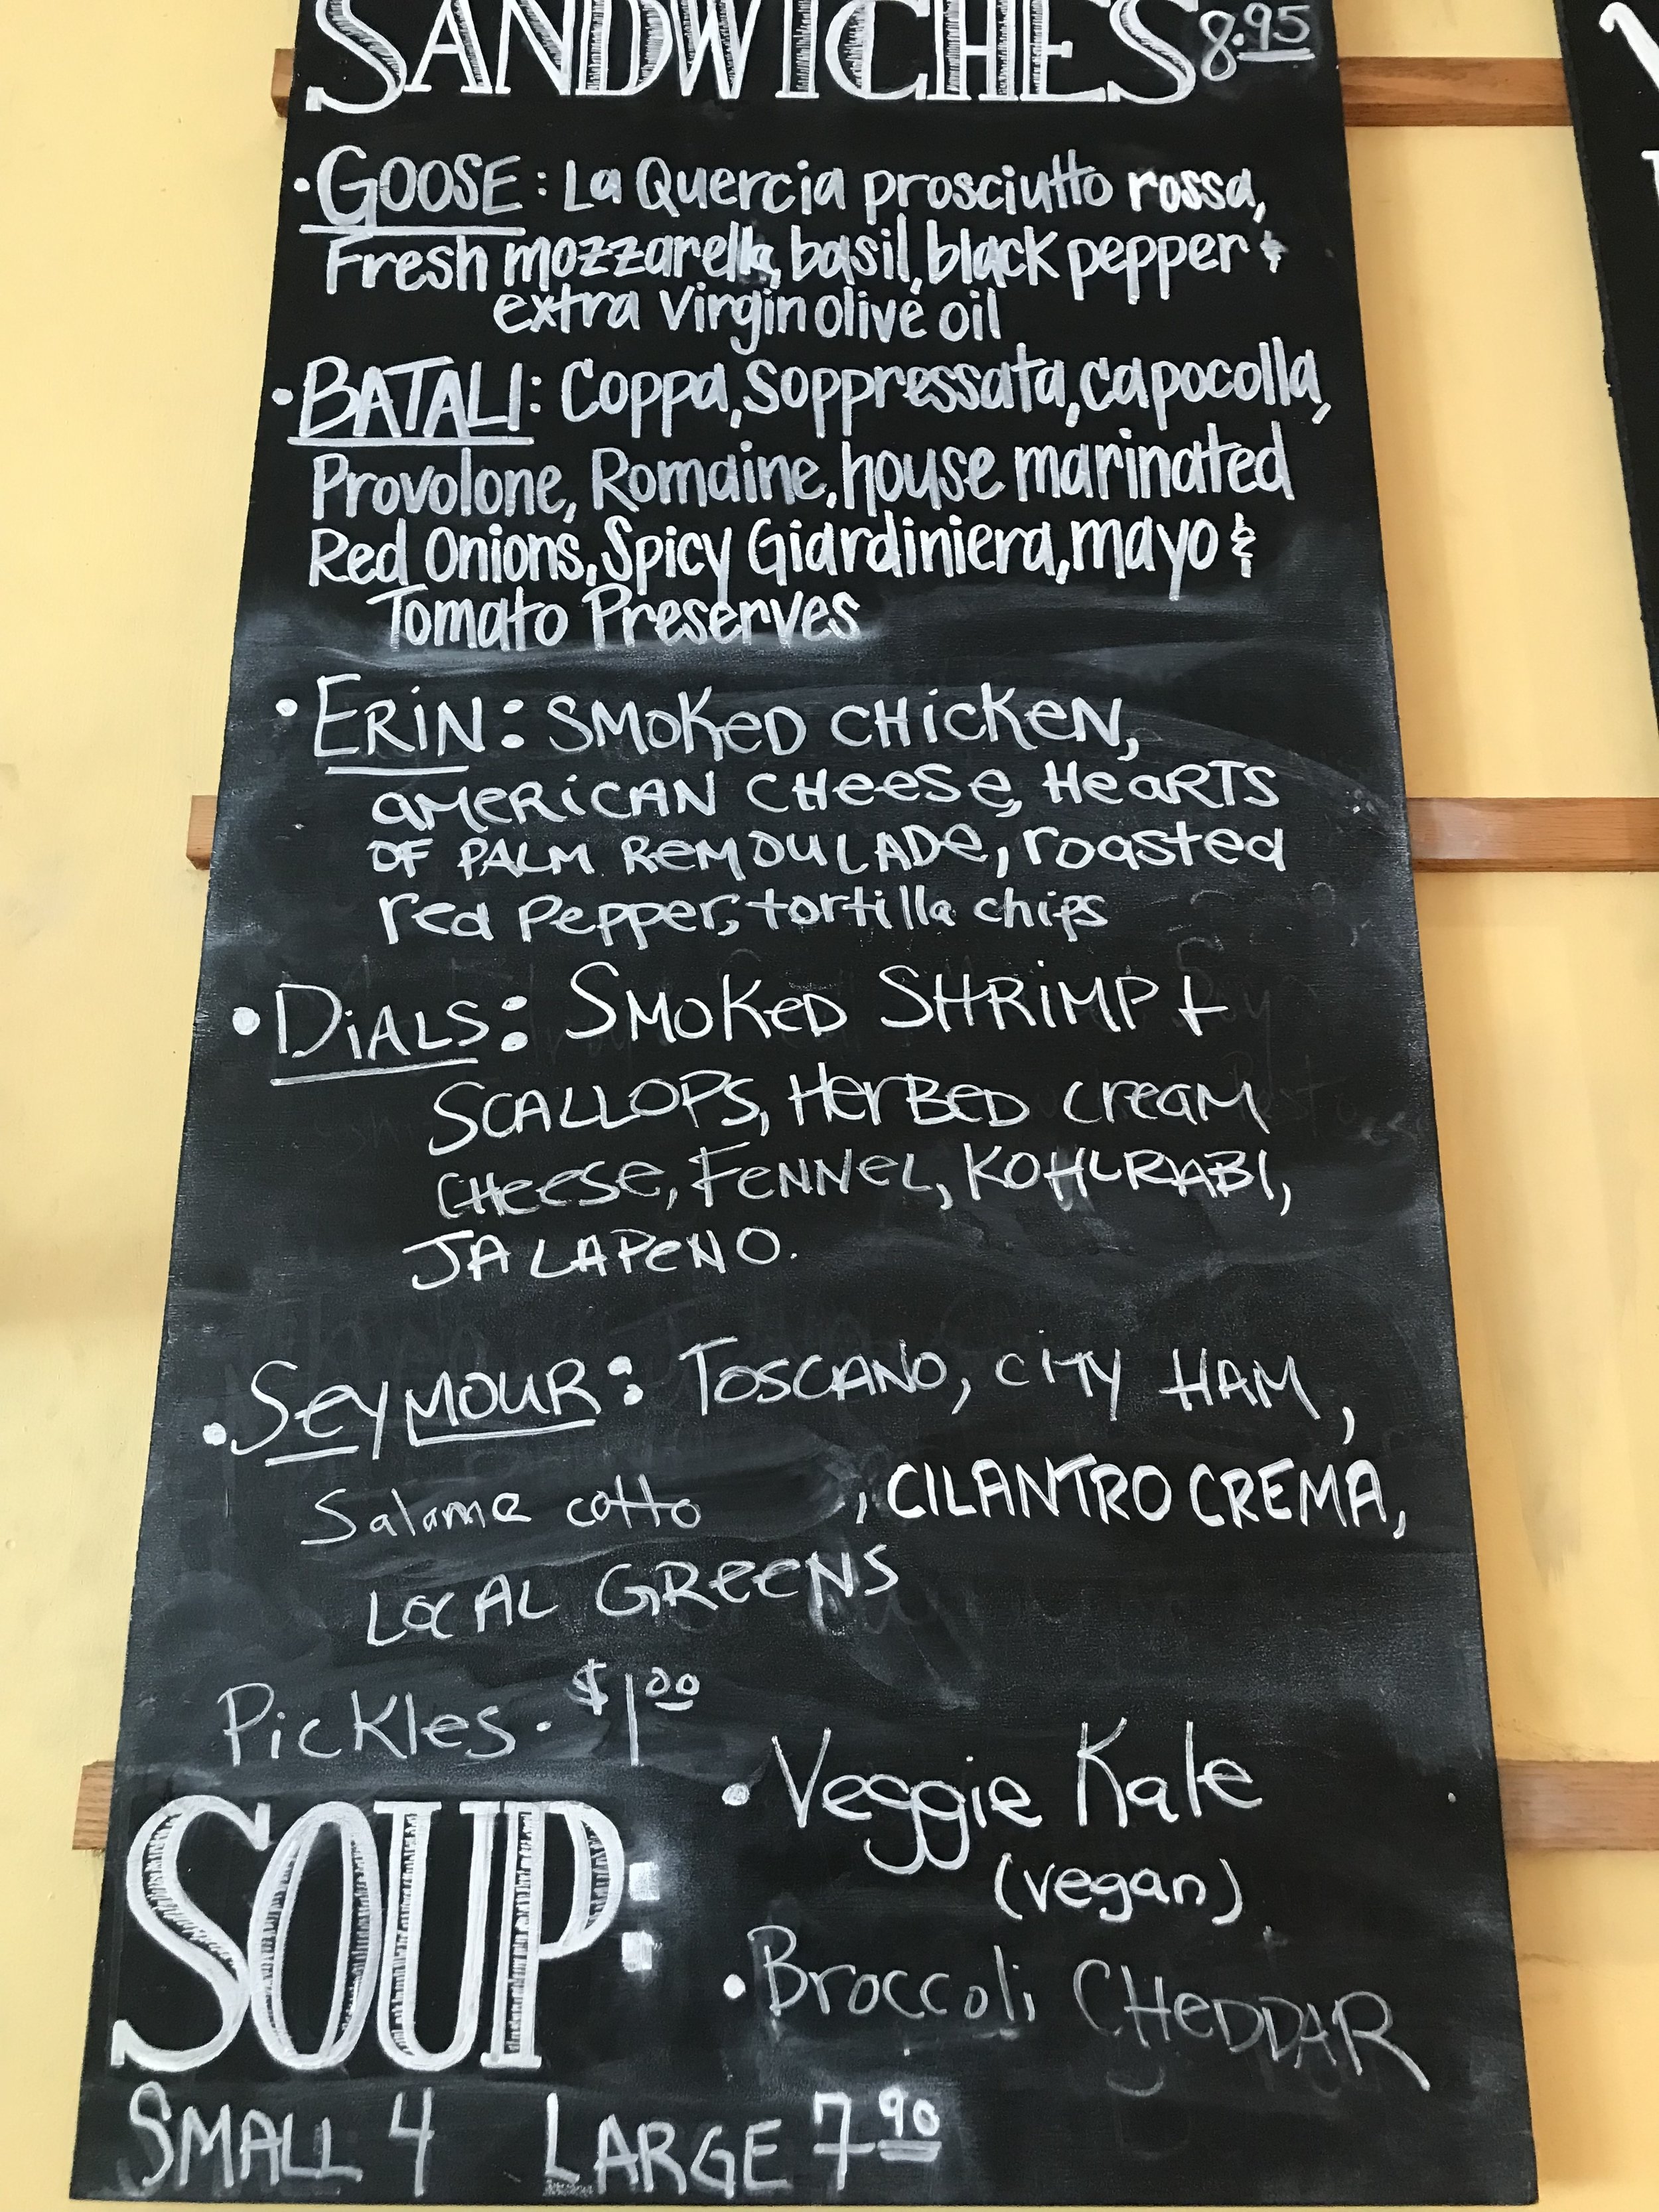 SANDWICHES 8.95
• GOOSE: La Quercia prosciutto rossa,
Fresh mozzarella, basil, black pepper &
extra virgin olive oil
• BATALI: Coppa, Soppressata, capocolla,
Provolone, Romaine, house marinated
Red Onions, Spicy Giardiniera, mayo &
Tomato Preserves
• ERiN: SMOKeD CHiCKeN,
aMeRiCAN CHeeSe, HeaRTS
OF PALM ReMOULADe, roasted
red pepper, tortilla chips
• DiALS: SMOKeD SHRiMP +
SCALLOPS, HerBeD cream
CHeeSe, FeNNeL, KOHLRABI,
JALAPeNO.
• SeyMOUR: TOSCANO, CiTY HAM,
Salame cotto , CILANTRO CREMA,
LOCAL GReeNS
Pickles · $1.00
SOUP:
• Veggie Kale
(vegan)
• Broccoli CHeDDAR
SMALL 4 LARGE 7.90